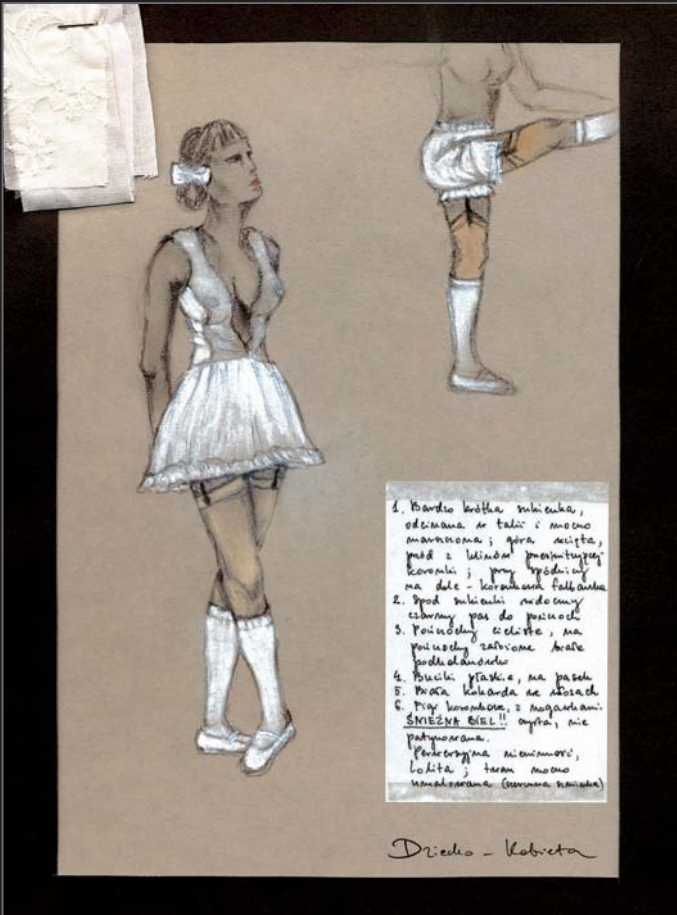 1. Bardzo krótka sukienka,
odcinana w talii i mocno
marszczona; góra wcięta,
przód z klinów prześwitującej
koronki; przy spódnicy
na dole - koronkowa falbanka
2. Spod sukienki widoczny
czarny pas do pończoch
3. Pończochy cieliste, na
pończochy założone białe
podkolanówki
4. Buciki płaskie, na pasek
5. Biała kokarda we włosach
6. koronkowe, z nogawkami.
ŚNIEŻNA BIEL!! czysta, nie
patynowana.
Perwersyjna niewinność,
Lolita; twarz mocno
umalowana (czerwona szminka)
Dziecko - Kobieta